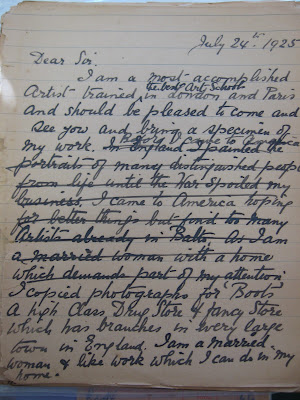 July 24th 1925
Dear Sir.
I am a most accomplished
the best Art Schools
Artist trained in London and Paris
and should be pleased to come and
see you and bring a specimen of
Before I came to America
my work. In England I painted the
portraits of many distinguished people
from life until the War spoiled my
business, I came to America hoping
for better things but find too many
Artists already in Balto, As I am
a married woman with a home
which demands part of my attention
I copied photographs for "Boots"
A high Class Drug Store & fancy Store
which has branches in every large
town in England. I am a married
woman & like work which I can do in my
home.